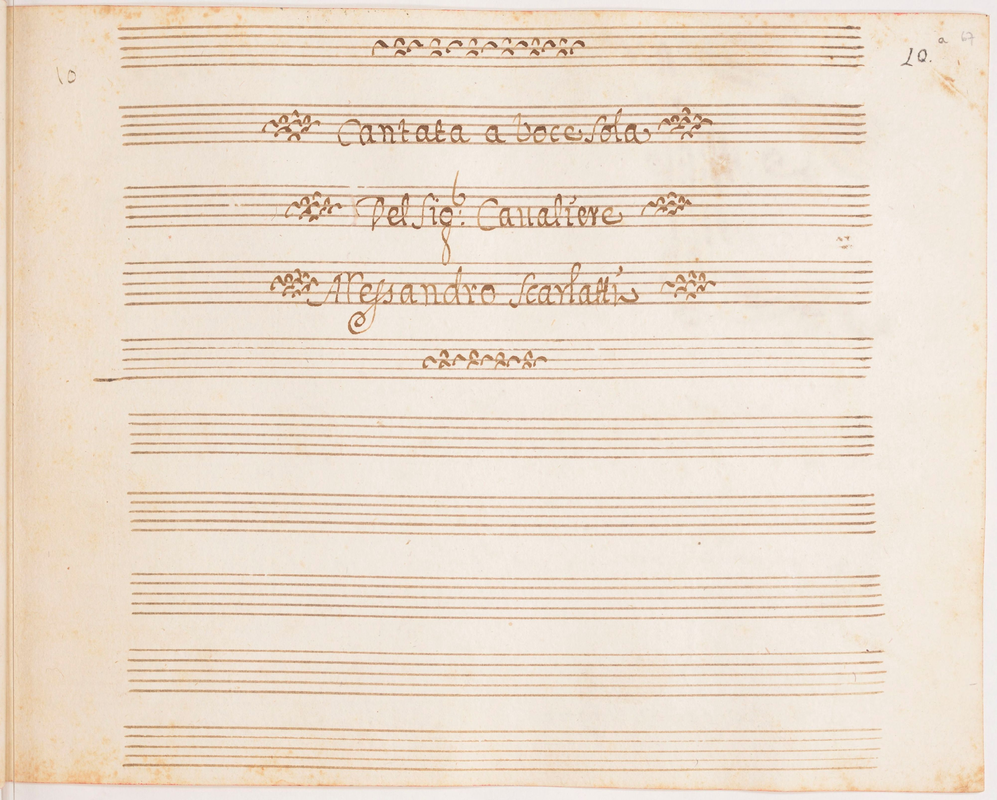 10
10.a 67
Cantata a Voce Sola
Del Sig.r Caualiere
Alessandro Scarlatti